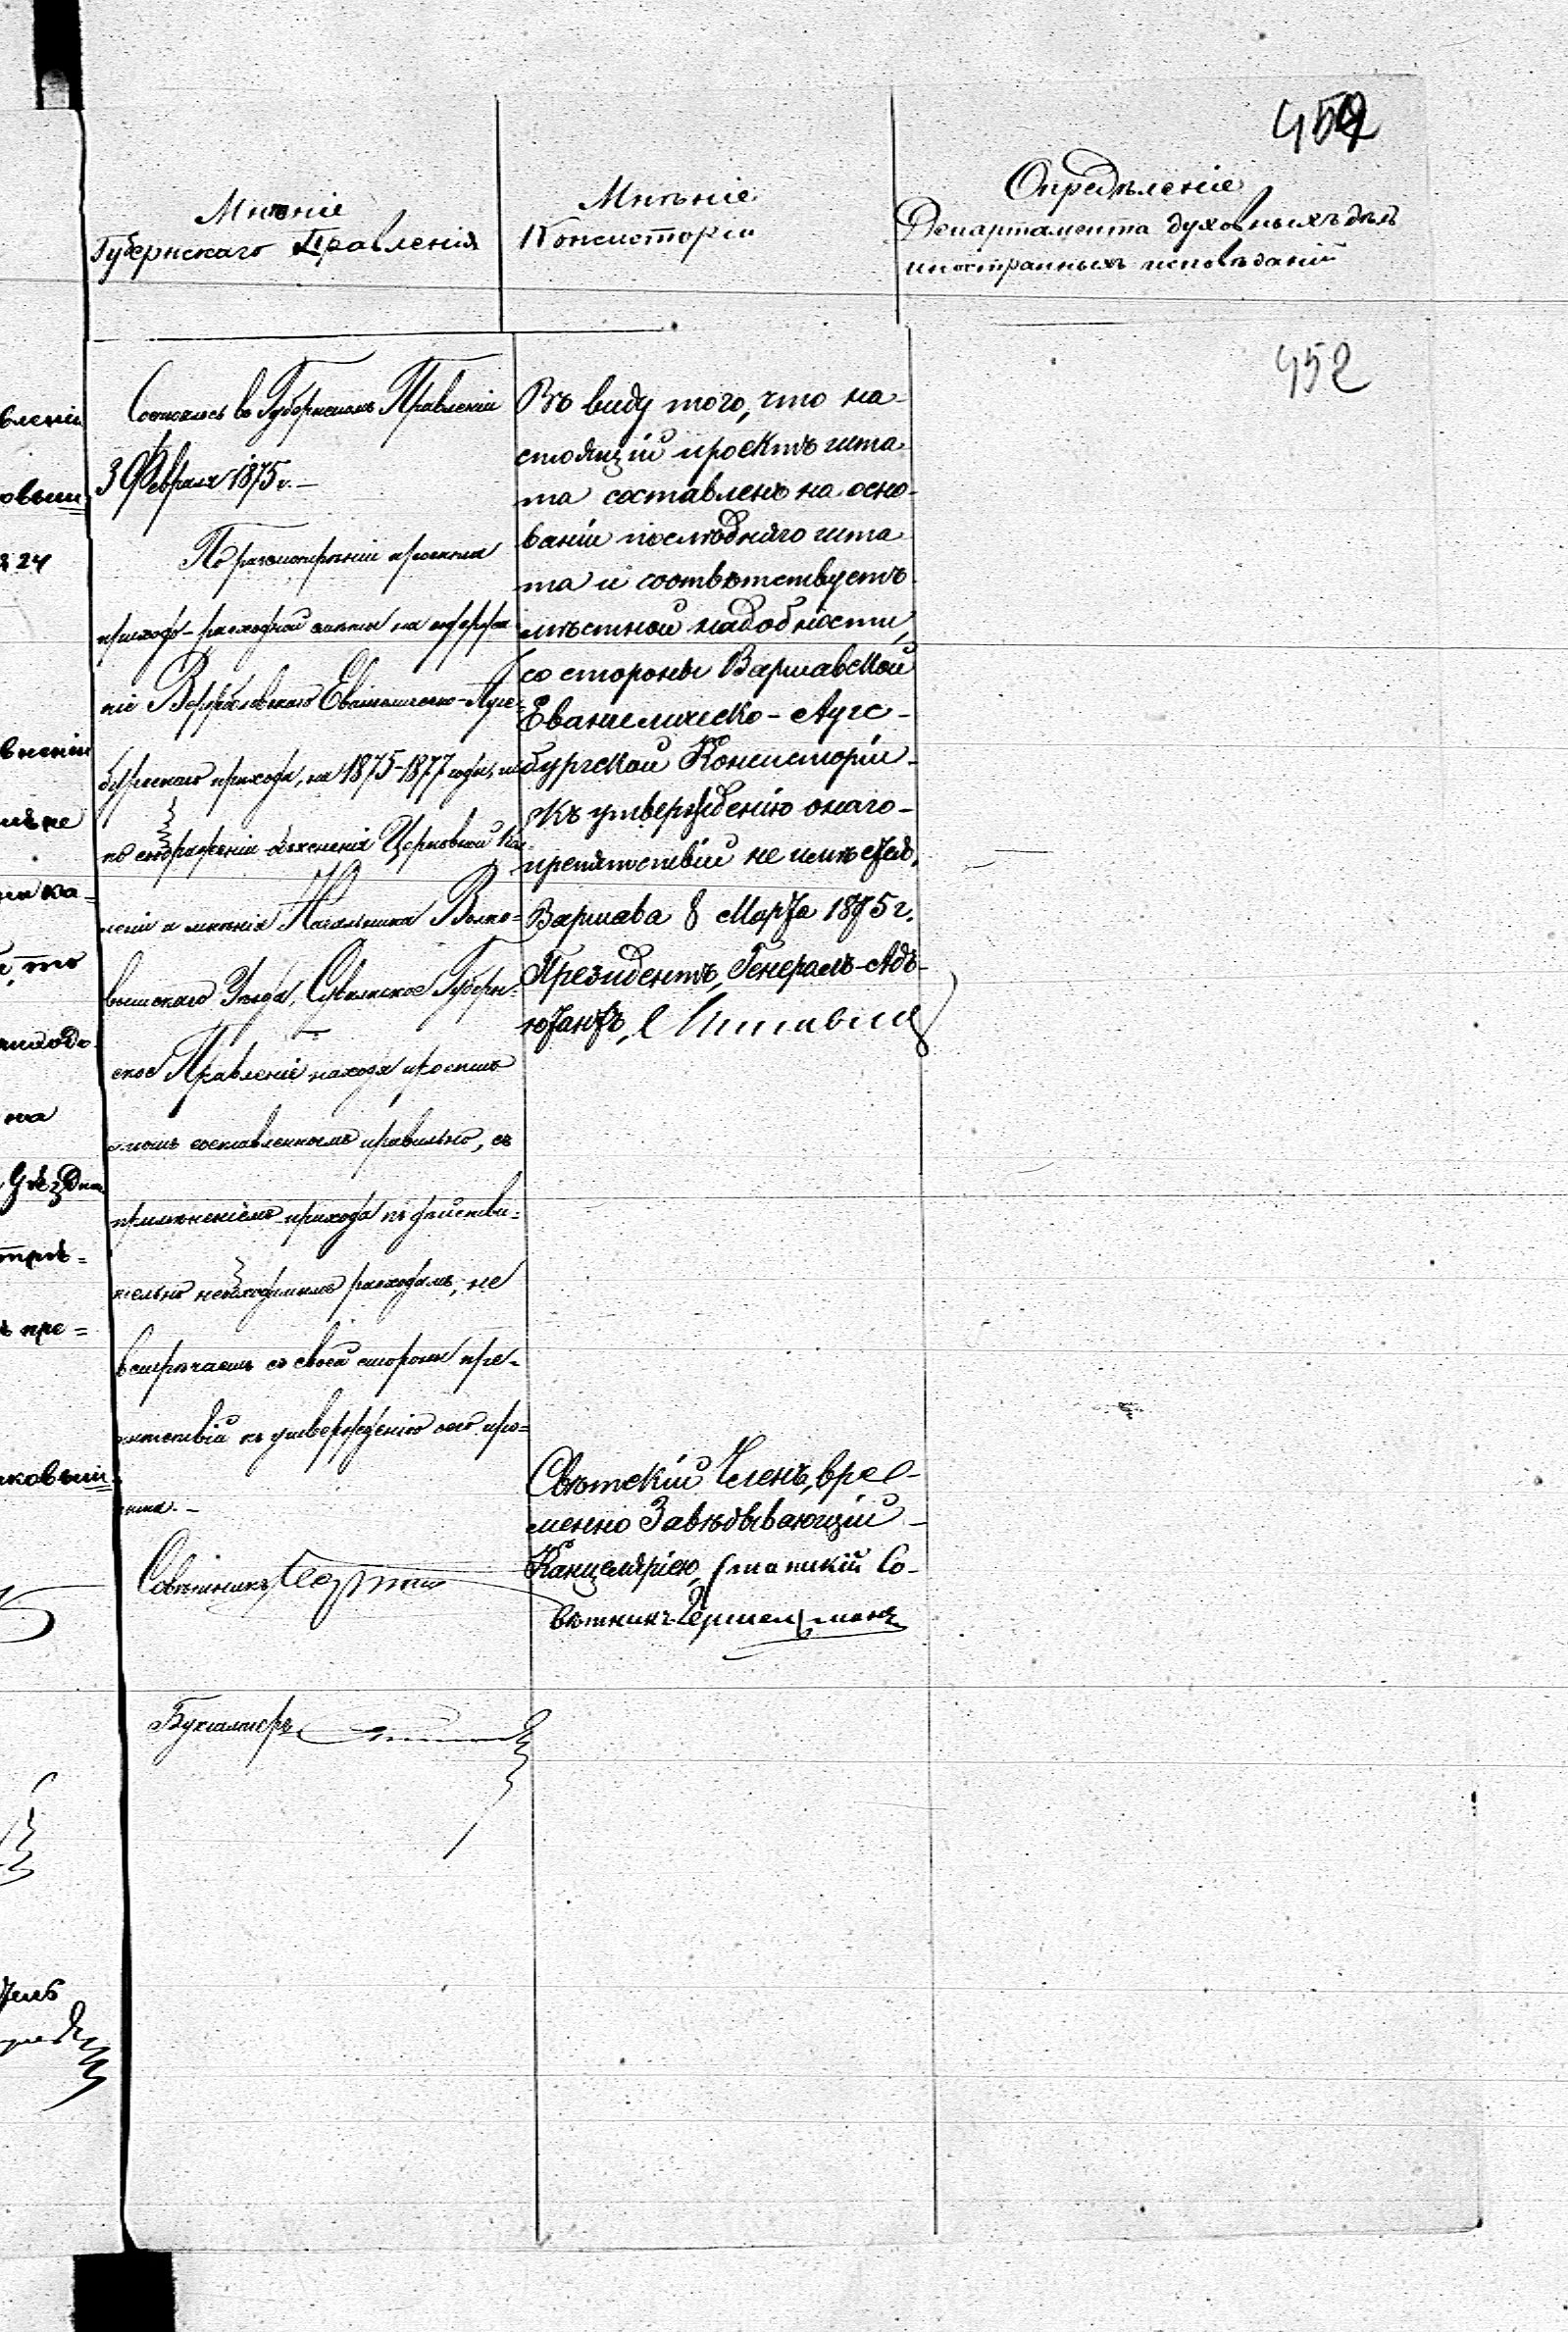 452
Мнѣніе
Губернскаго Правленія
Мнѣніе
Консисторіи
Опредѣленіе
Департамента духовныхъ дѣлъ
иностранныхъ исповѣданій
452
Состоялось въ Губернскомъ Правленіи
3 Февраля 1875 г.—
По разсмотрѣніи проекта
приходо-расходной смѣты на содержа
ніе Вержболовскаго Евангелическо-Аугс-
бургскаго прихода, на 1875-1877 годы, и
по соображеніи объясненія Церковной Кол-
легіи и мнѣнія Начальника Волко-
вышскаго Уѣзда, Сувалкское Губерн-
ское Правленіе находя проектъ
этотъ составленнымъ правильно, съ
примѣненіемъ прихода къ дѣйстви-
тельно необходимымъ расходамъ, не
встрѣчаетъ съ своей стороны пре-
пятствій къ утвержденію сего про-
екта.—
Совѣтникъ
Бухгалтеръ
Въ виду того, что на-
стоящій проектъ шта
та составленъ на осно-
ваніи послѣдняго шта
та и соотвѣтствуетъ
мѣстной надобности,
со стороны Варшавской
Евангелическо-Аугс-
бургской Консисторіи-
къ утвержденію онаго-
препятствій не имѣется.
Варшава 8 Марта 1875 г.
Президентъ, Генералъ-Адъ-
ютантъ,
Свѣтскій Членъ, вре-
менно Завѣдывающій-
Канцеляріею, Статскій Со-
вѣтникъ
вленіи
24
ка-
то
на
Уѣздн
пре=